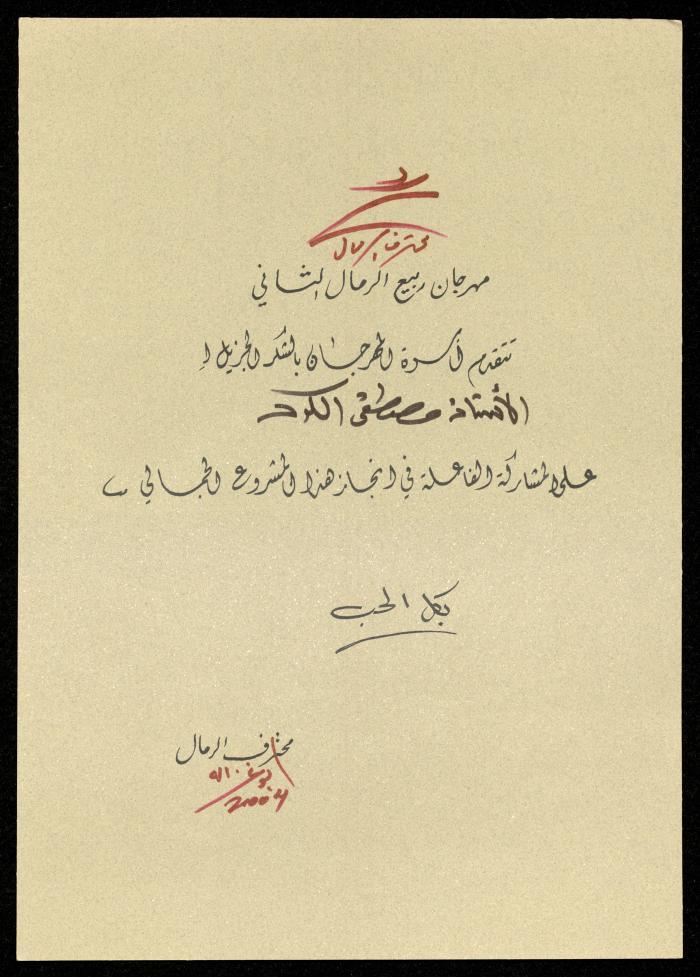 محترف الرمال
مهرجان ربيع الرمال الثاني
تتقدم أسرة المهرجان بالشكر الجزيل إ
الأستاذ مصطفى الكرد
على المشاركة الفاعلة في انجاز هذا المشروع الجمالي
بكل الحب
محترف الرمال
2004